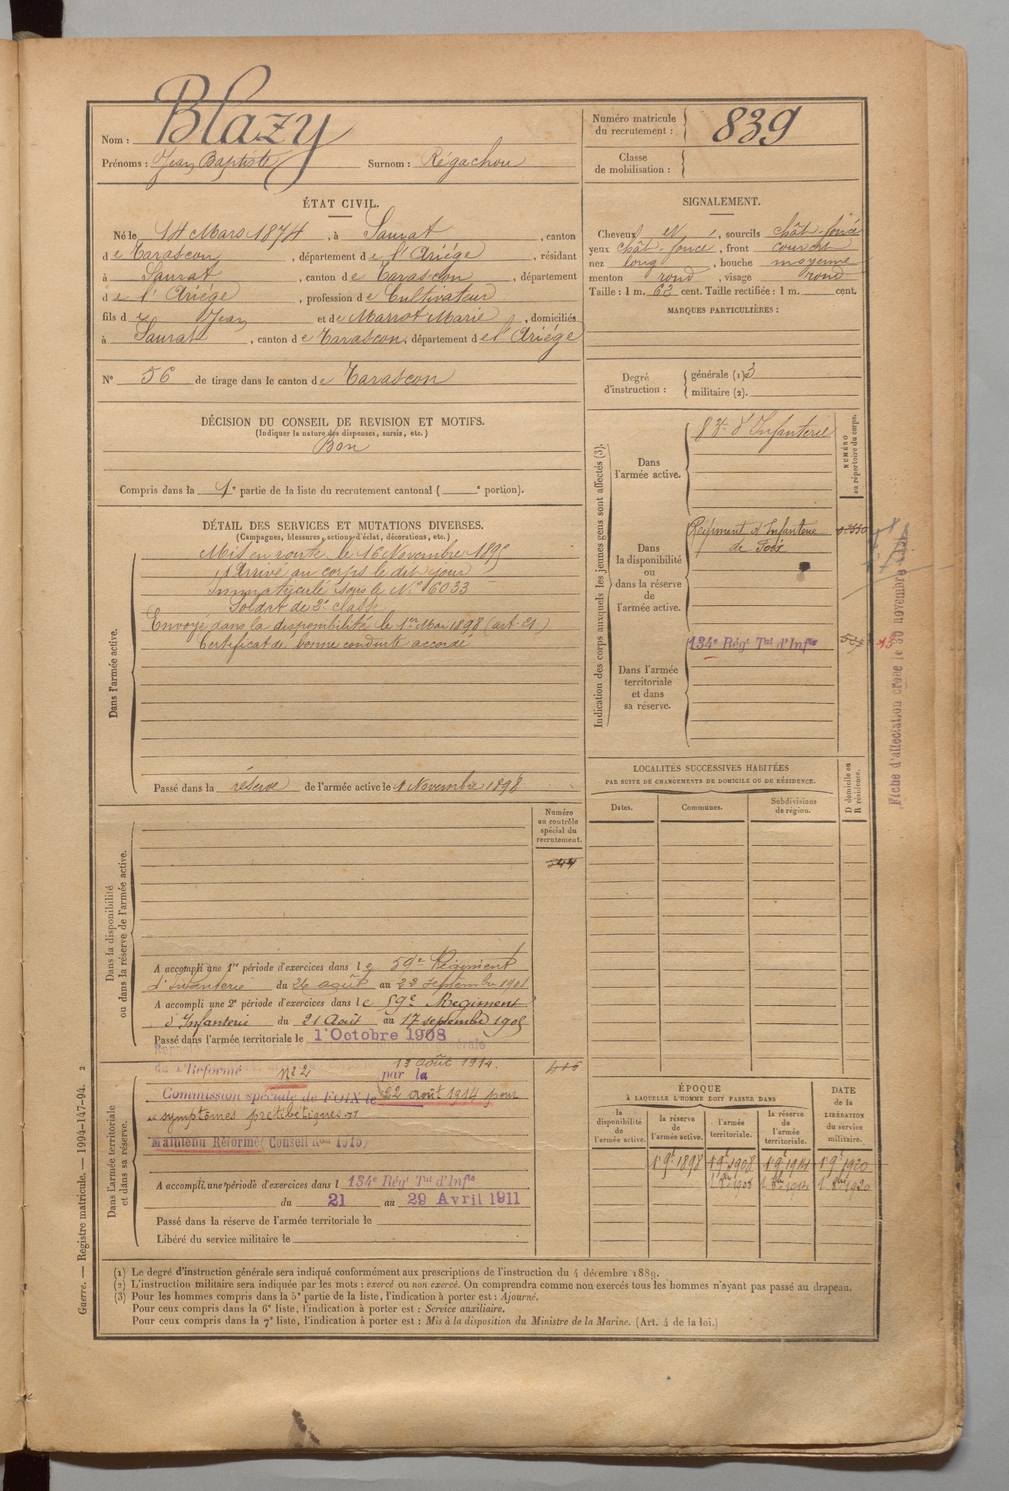 Nom : Blazy
Prénoms : Jean Baptiste Surnom : Régachou
Numéro matricule
du recrutement : 839
Classe
de mobilisation :
ÉTAT CIVIL.
Né le 14 Mars 1874, à Saurat, canton
de Tarascon, département de l'Ariége, résidant
à Saurat, canton de Tarascon, département
de l'Ariége, profession de Cultivateur
fils de Jean et de Marrot Marie, domiciliés
à Saurat, canton de Tarascon, département de l'Ariége
N° 56 de tirage dans le canton de Tarascon
SIGNALEMENT.
Cheveux et, sourcils chât-foncé
yeux chât-foncé, front couvert
nez long, bouche moyenne
menton rond, visage rond
Taille : 1 m. 62 cent. Taille rectifiée : 1 m. cent.
MARQUES PARTICULIÈRES :
Degré
d'instruction :
générale (1) 3
militaire (2).
DÉCISION DU CONSEIL DE REVISION ET MOTIFS.
(Indiquer la nature des dispenses, sursis, etc.)
Bon
Compris dans la 1e partie de la liste du recrutement cantonal ( e portion).
DÉTAIL DES SERVICES ET MUTATIONS DIVERSES.
(Campagnes, blessures, actions d'éclat, décorations, etc.)
Dans l'armée active.
Mis en route le 16 Novembre 1895
Arrivé au corps le dit jour
Immatriculé sous le N° 6033
Soldat de 2e classe
Envoyé dans la disponibilité le 1er Mai 1898 (art 21)
Certificat de bonne conduite accordé
Passé dans la réserve de l'armée active le 1 Novembre 1898
Indication des corps auxquels les jeunes gens sont affectés (3).
NUMÉRO
au répertoire du corps.
Dans
l'armée active.
83e d'Infanterie
Dans
la disponibilité
ou
dans la réserve
de
l'armée active.
Régiment d'Infanterie
de Foix
Dans l'armée
territoriale
et dans
sa réserve.
134e Régt Tal d'Infie
Fiche d'affectation créée le 30 novembre
LOCALITÉS SUCCESSIVES HABITÉES
PAR SUITE DE CHANGEMENTS DE DOMICILE OU DE RÉSIDENCE.
Dates.
Communes.
Subdivisions
de région.
D domicile ou
R résidence.
Numéro
au contrôle
spécial du
recrutement.
Dans la disponibilité
ou dans la réserve de l'armée active.
A accompli une 1re période d'exercices dans le 59e Régiment
d'Infanterie du 26 août au 22 septembre 1901
A accompli une 2e période d'exercices dans le 59e Régiment
d'Infanterie du 21 Août au 17 septembre 1905
Passé dans l'armée territoriale le 1 Octobre 1908
Dans l'armée territoriale
et dans sa réserve.
13 août 1914.
Réformé n° 2 par la
Commission spéciale de FOIX le 22 août 1914 pour
Maintenu Réformé
A accompli une période d'exercices dans l 134e Régt Tal d'Infie
du 21 au 29 Avril 1911
Passé dans la réserve de l'armée territoriale le
Libéré du service militaire le
ÉPOQUE
À LAQUELLE L'HOMME DOIT PASSER DANS
la
disponibilité
de
l'armée active.
la réserve
de
l'armée active.
l'armée
territoriale.
la réserve
de
l'armée
territoriale.
DATE
de la
LIBÉRATION
du service
militaire.
1 9e 1898 1 9e 1908 1 9e 1914 1 9e 1920
(1) Le degré d'instruction générale sera indiqué conformément aux prescriptions de l'instruction du 4 décembre 1889.
(2) L'instruction militaire sera indiquée par les mots : exercé ou non exercé. On comprendra comme non exercés tous les hommes n'ayant pas passé au drapeau.
(3) Pour les hommes compris dans la 5e partie de la liste, l'indication à porter est : Ajourné.
Pour ceux compris dans la 6e liste, l'indication à porter est : Service auxiliaire.
Pour ceux compris dans la 7e liste, l'indication à porter est : Mis à la disposition du Ministre de la Marine. (Art. 4 de la loi.)
Guerre. — Registre matricule. — 1994-147-94. 2